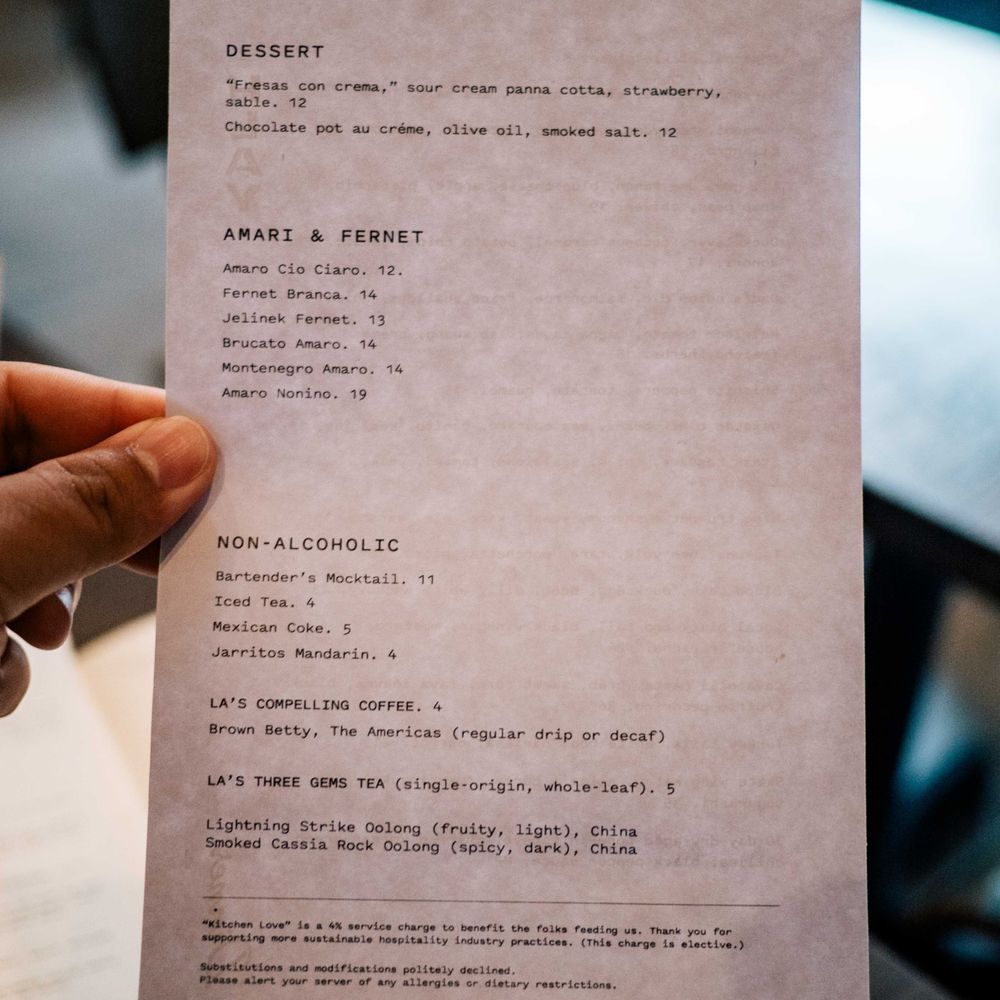 DESSERT
“Fresas con crema,” sour cream panna cotta, strawberry,
sable. 12
Chocolate pot au créme, olive oil, smoked salt. 12
AMARI & FERNET
Amaro Cio Ciaro. 12.
Fernet Branca. 14
Jelinek Fernet. 13
Brucato Amaro. 14
Montenegro Amaro. 14
Amaro Nonino. 19
NON-ALCOHOLIC
Bartender’s Mocktail. 11
Iced Tea. 4
Mexican Coke. 5
Jarritos Mandarin. 4
LA’S COMPELLING COFFEE. 4
Brown Betty, The Americas (regular drip or decaf)
LA’S THREE GEMS TEA (single-origin, whole-leaf). 5
Lightning Strike Oolong (fruity, light), China
Smoked Cassia Rock Oolong (spicy, dark), China
“Kitchen Love” is a 4% service charge to benefit the folks feeding us. Thank you for
supporting more sustainable hospitality industry practices. (This charge is elective.)
Substitutions and modifications politely declined.
Please alert your server of any allergies or dietary restrictions.